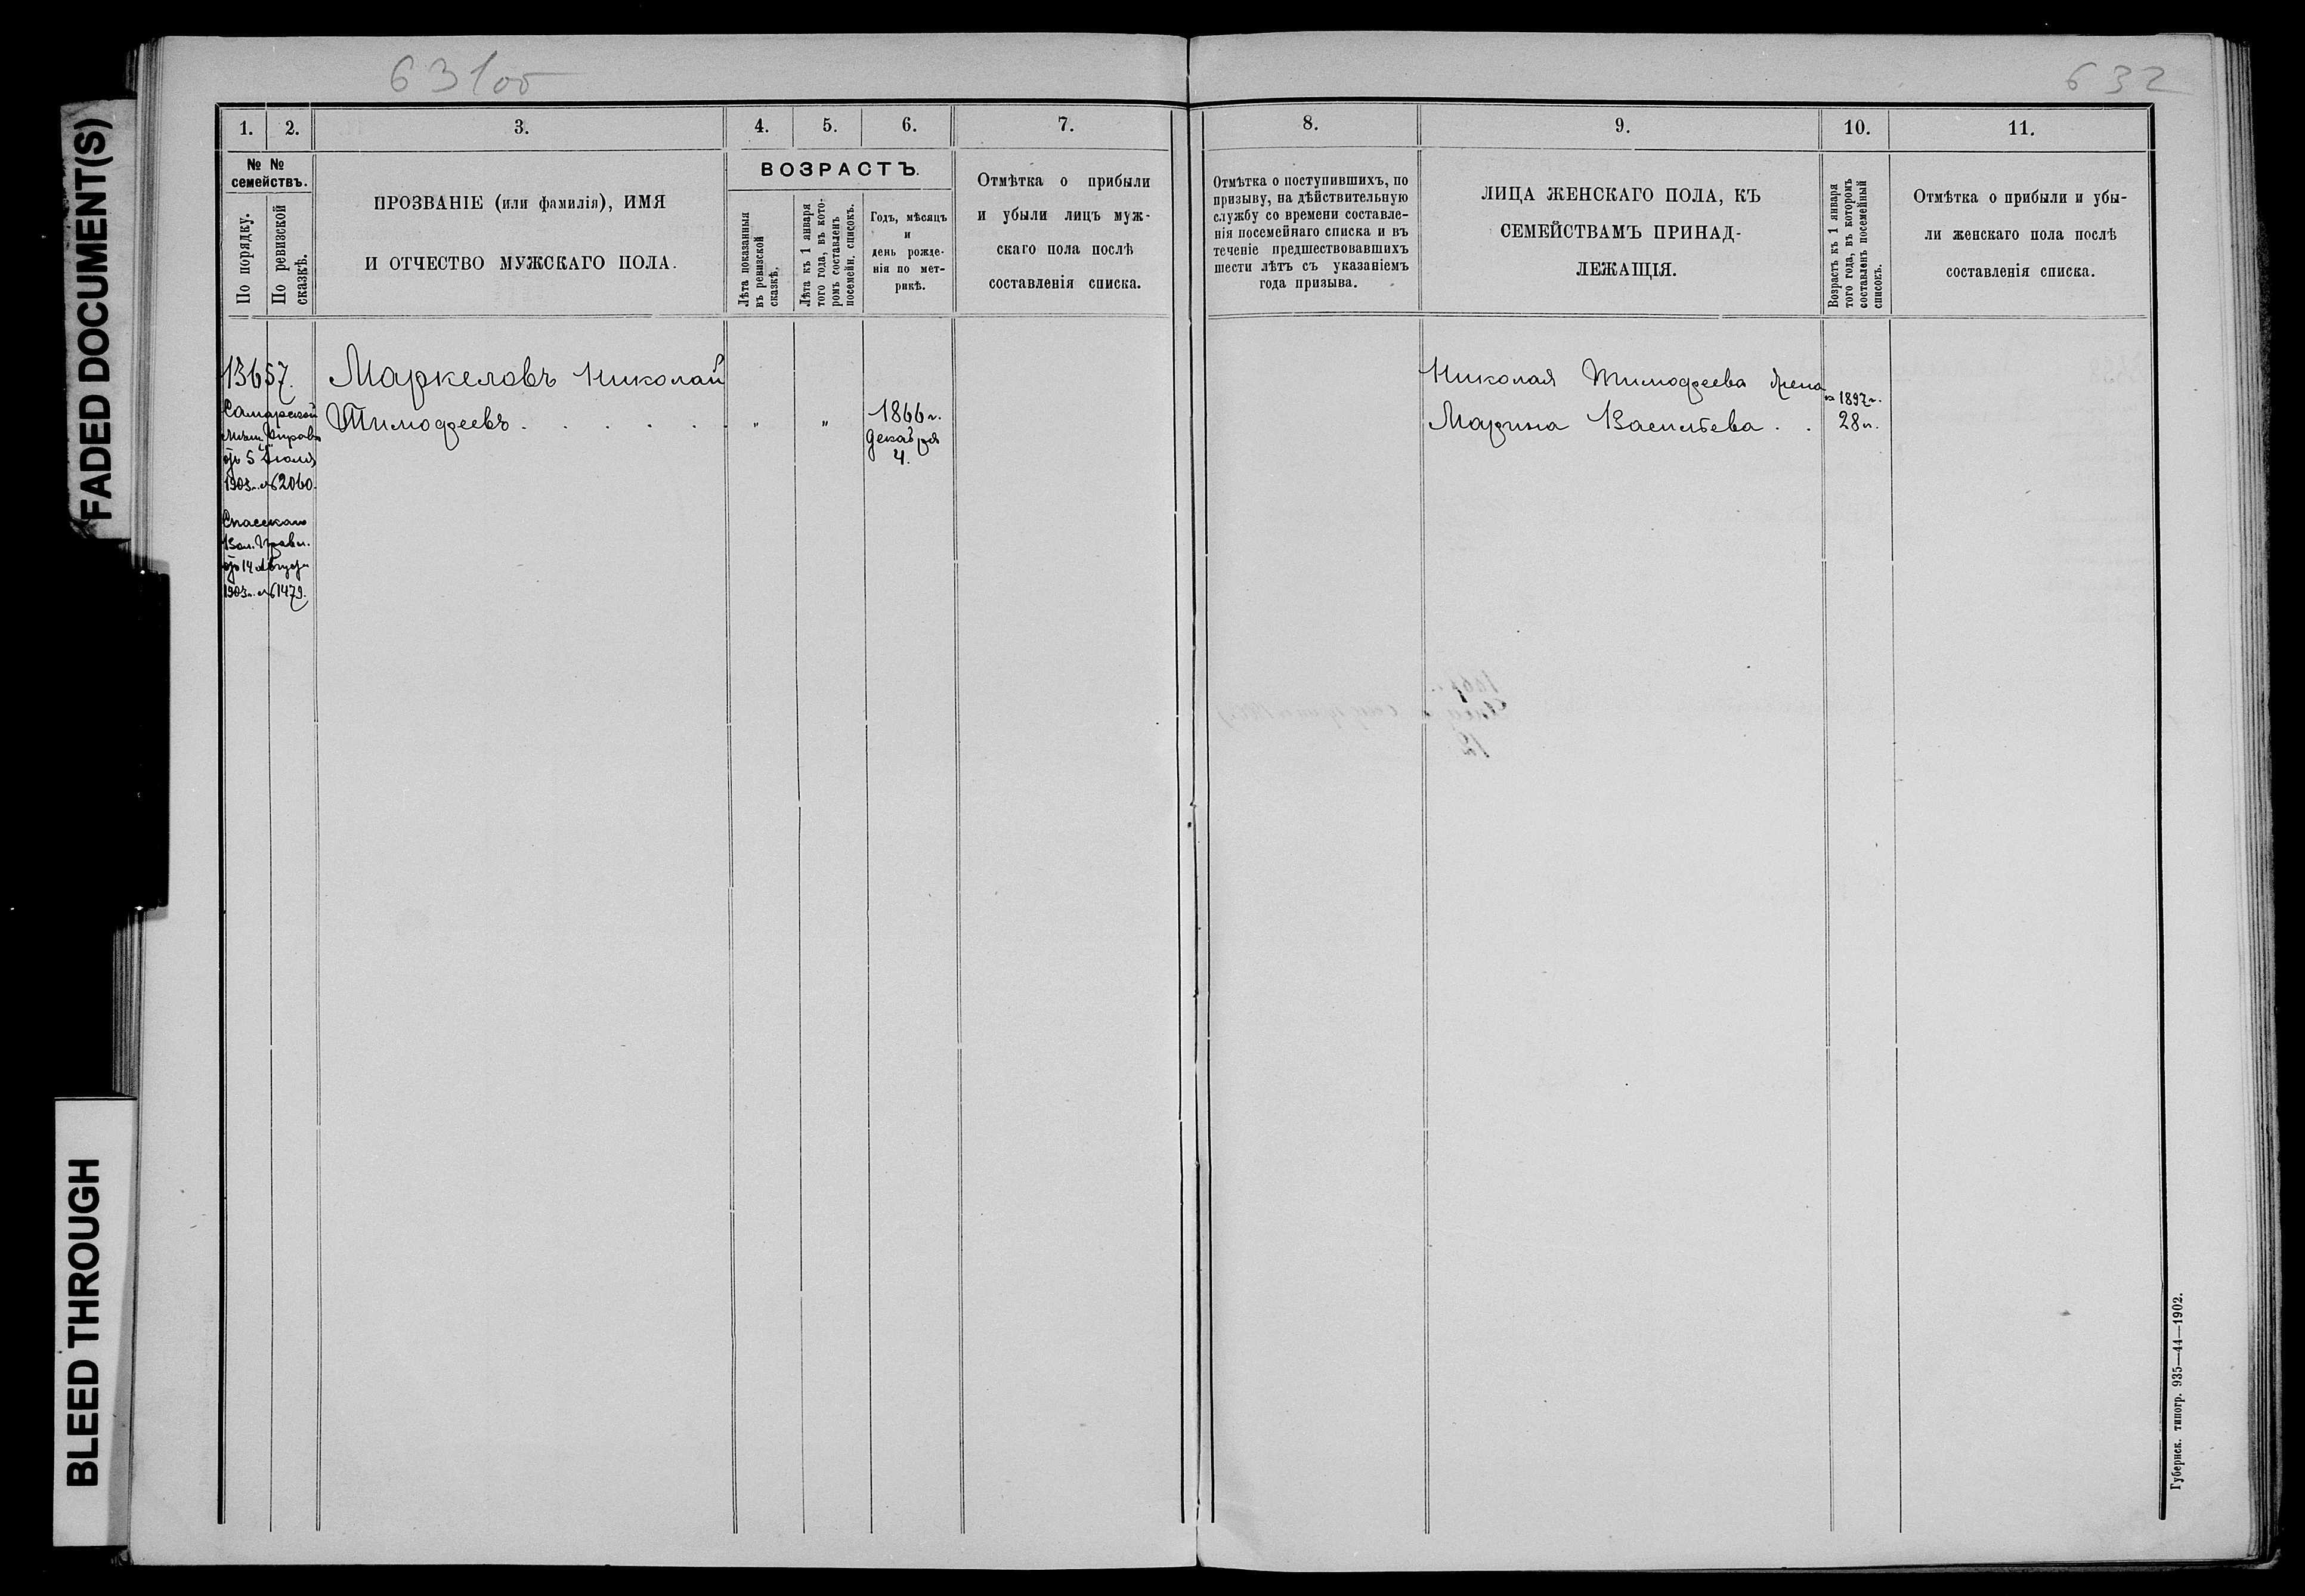 FADED DOCUMENT(S)
BLEED THROUGH
631об
632
1.
2.
3.
4.
5.
6.
7.
8.
9.
10.
11.
№ №
семействъ.
По порядку.
По ревизской
сказкѣ.
ПРОЗВАНІЕ (или фамилія), ИМЯ
И ОТЧЕСТВО МУЖСКАГО ПОЛА.
ВОЗРАСТЪ.
Лѣта показанныя
въ ревизской
сказкѣ.
Лѣта къ 1 января
того года, въ кото-
ромъ составленъ
посемейн. списокъ.
Годъ, мѣсяцъ
и
день рожде-
нія по мет-
рикѣ.
Отмѣтка о прибыли
и убыли лицъ муж-
скаго пола послѣ
составленія списка.
Отмѣтка о поступившихъ, по
призыву, на дѣйствительную
службу со времени составле-
нія посемейнаго списка и въ
теченіе предшествовавшихъ
шести лѣтъ съ указаніемъ
года призыва.
ЛИЦА ЖЕНСКАГО ПОЛА, КЪ
СЕМЕЙСТВАМЪ ПРИНАД-
ЛЕЖАЩІЯ.
Возрастъ къ 1 января
того года, въ которомъ
составленъ посемейный
списокъ.
Отмѣтка о прибыли и убы-
ли женскаго пола послѣ
составленія списка.
13657.
Самарской
Мѣщ. Управы
отъ 5 Іюля
1903г. № 2060.
Спасскаго
Вол. Правл.
отъ 14 Августа
1903г. № 1479.
Маркеловъ Николай
Тимофеевъ . . . . . „ „
1866 г.
Декабря
4.
Николая Тимофеева жена
Марина Васильева . .
въ 1897г.
28 л.
Губернск. типогр. 935—44—1902.